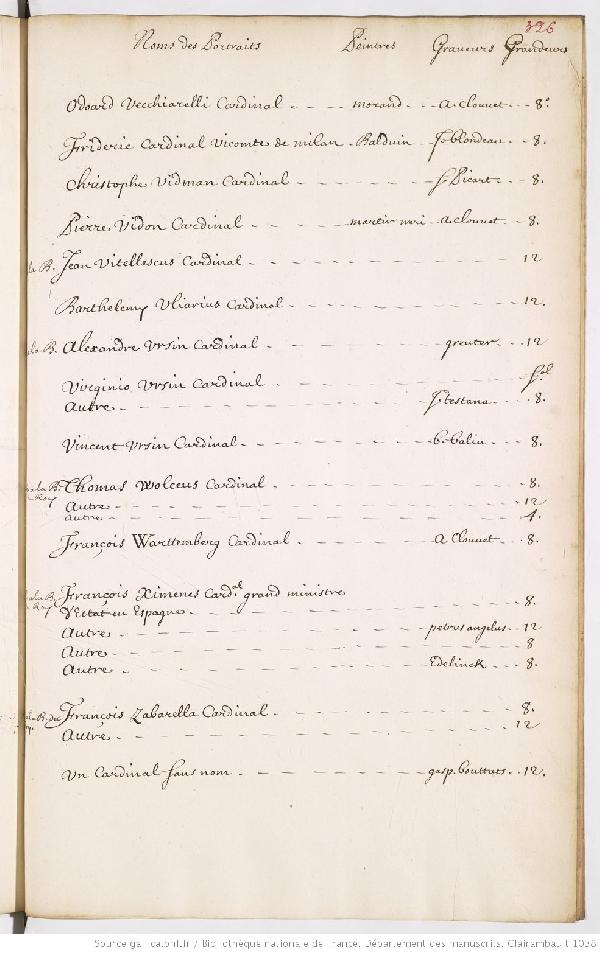 326
Noms des Portraits Peintres Graueurs Grandeurs
Odoard Vecchiarelli Cardinal morand A Clouuet 8.
Frideric Cardinal Vicomte de milan Balduin J. blondeau 8.
Christophe Vidman Cardinal J. Picart 8.
Pierre Vidon Cardinal martin neri A Clouuet 8.
la B. Jean Vitellescus Cardinal 12
Barthelemy Vliarius Cardinal 12.
la B. Alexandre Vrsin Cardinal greuter 12
Virginio Vrsin Cardinal fol
Autre J. testana 8.
Vincent Vrsin Cardinal b. baliu 8.
la B. Thomas Wolceus Cardinal 8.
Roy Autre 12
autre 4.
François Warttemberg Cardinal A Clouuet 8.
la B. François Ximenes Card.al grand ministre
Roy d'Estat en Espagne 8.
Autre petrus angelus 12
Autre 8
Autre Edelinck 8.
la B. du François Zabarella Cardinal 8.
Autre 12
Vn Cardinal sans nom gasp. bouttats 12.
Source gallica.bnf.fr / Bibliothèque nationale de France. Département des manuscrits. Clairambault 1038